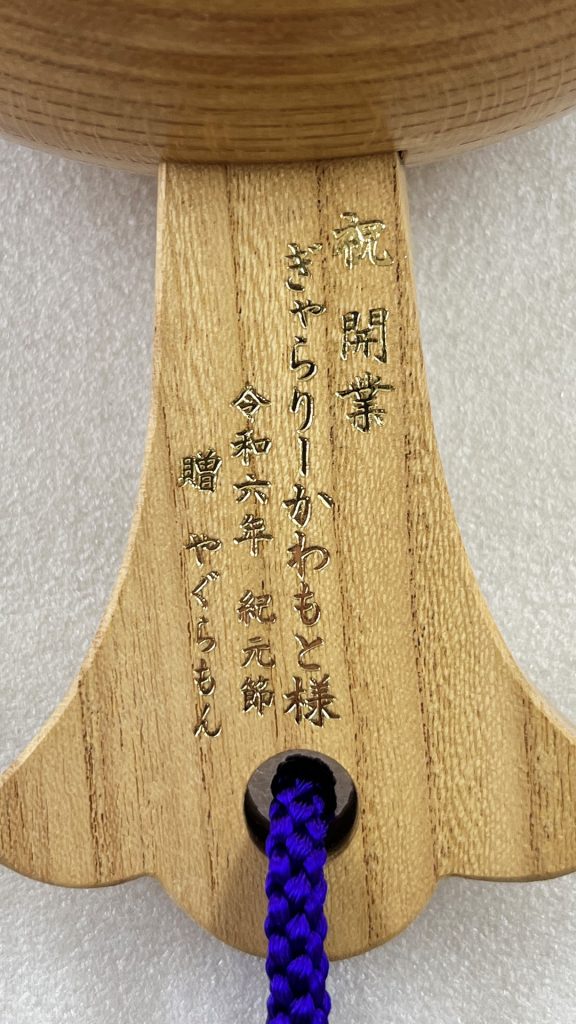 祝 開業
ぎゃらりーかわもと様
令和六年 紀元節
贈 やぐらもん